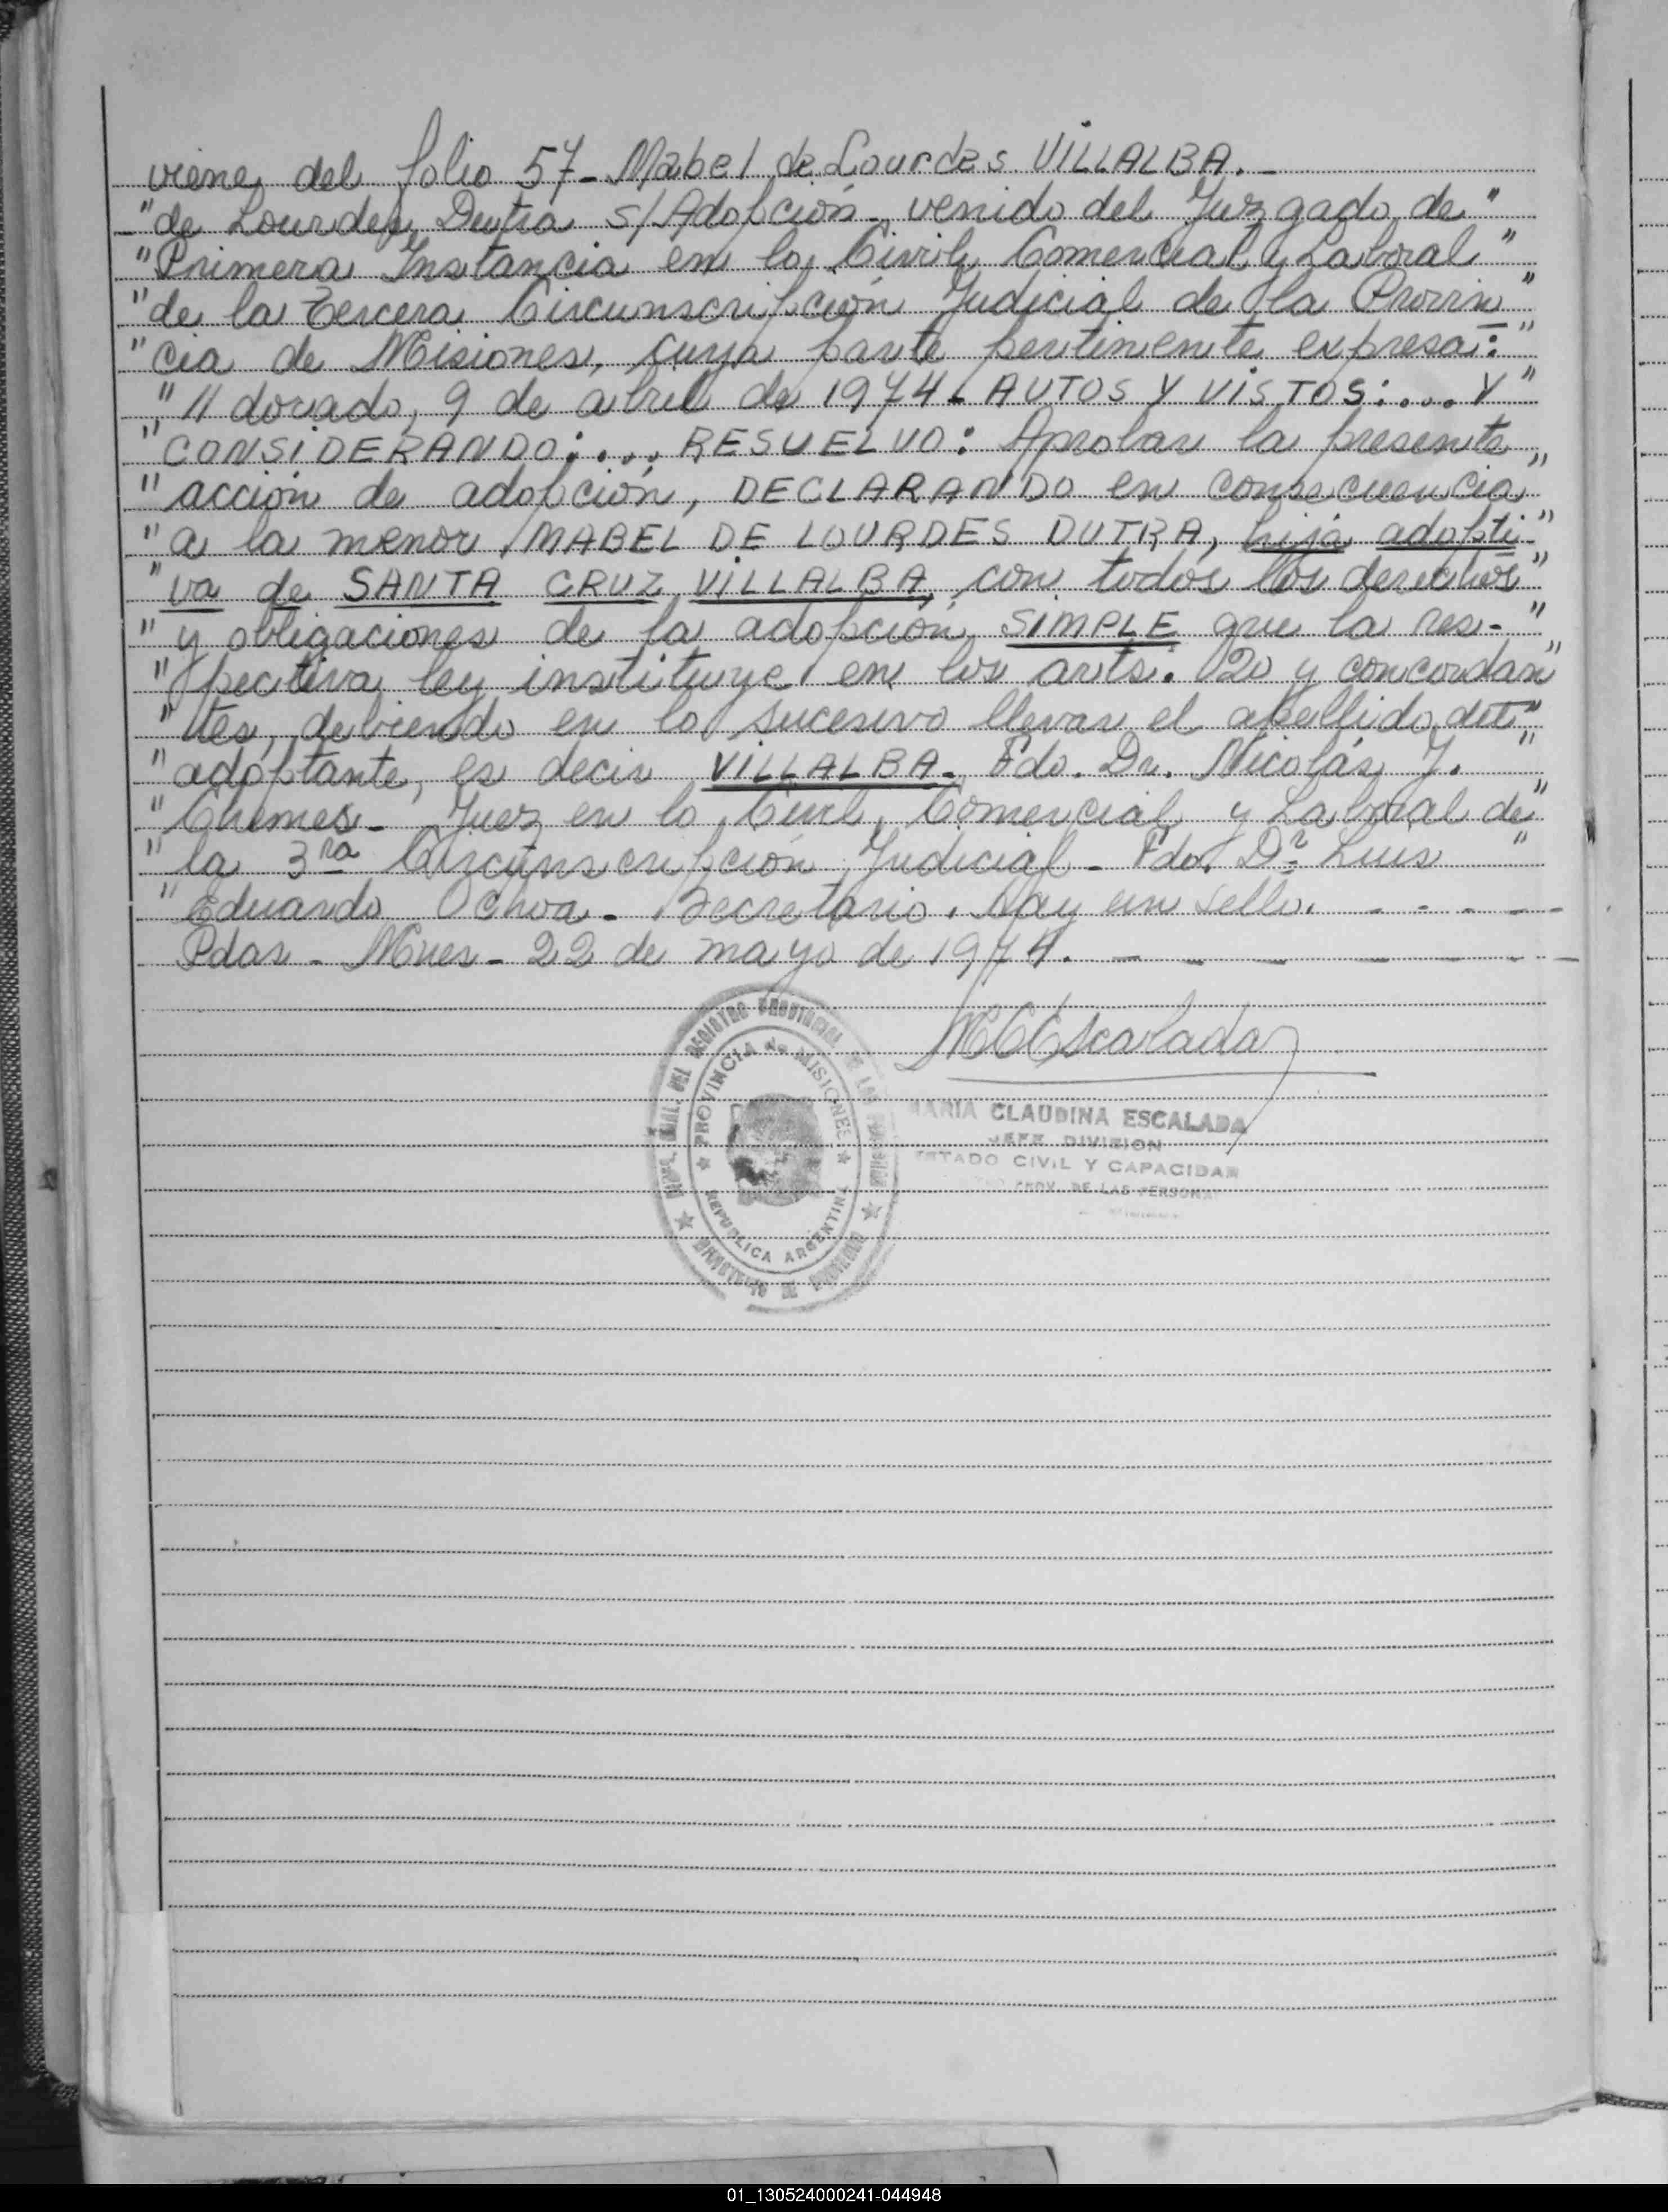 viene del folio 57 - Mabel de Lourdes VILLALBA. -
"de Lourdes Dutra s/Adopción - venido del Juzgado de"
"Primera Instancia en lo Civil, Comercial y Laboral"
"de la Tercera Circunscripción Judicial de la Provin"
"cia de Misiones, cuya parte pertinente expresa:"
"//dorado, 9 de abril de 1974 - AUTOS Y VISTOS:.... Y"
"CONSIDERANDO:.... RESUELVO: Aprobar la presente
"acción de adopción, DECLARANDO en consecuencia"
"a la menor MABEL DE LOURDES DUTRA, hija adopti-"
"va de SANTA CRUZ VILLALBA, con todos los derechos"
"y obligaciones de la adopción SIMPLE que la res-"
"pectiva ley instituye en los arts. 20 y concordan"
"tes, debiendo en lo sucesivo llevar el apellido del"
"adoptante, es decir VILLALBA. Fdo. Dr. Nicolás J."
"Chemes - Juez en lo Civil, Comercial y Laboral de"
"la 3ra Circunscripción Judicial - Fdo. Dr Luis"
"Eduardo Ochoa - Secretario. Hay un sello. - - - -
Pdas - Mnes - 22 de mayo de 1974. - - - - - -
MCEscalada
MARIA CLAUDINA ESCALADA
JEFE DIVISION
ESTADO CIVIL Y CAPACIDAD
PROV. DE LAS PERSONAS
GRAL. DEL REGISTRO PROVINCIAL DE LAS PERSONAS
PROVINCIA de MISIONES
REPUBLICA ARGENTINA
MINISTERIO DE GOBIERNO
01_130524000241-044948